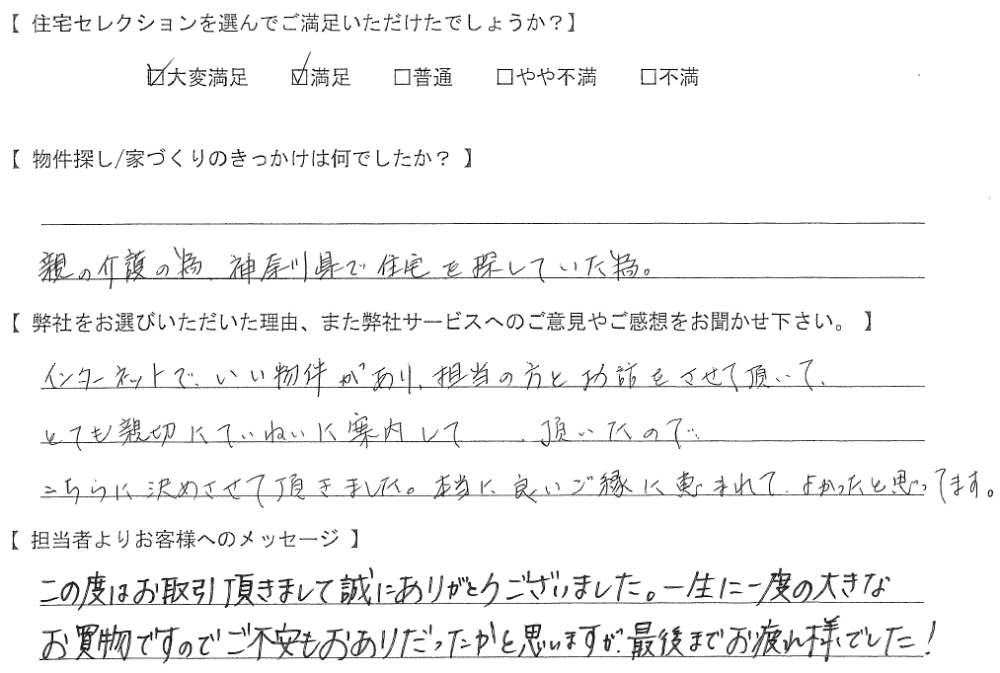 【 住宅セレクションを選んでご満足いただけたでしょうか？】
☑大変満足 ☑満足 □普通 □やや不満 □不満
【 物件探し/家づくりのきっかけは何でしたか？ 】
親の介護の為、神奈川県で住宅を探していた為。
【 弊社をお選びいただいた理由、また弊社サービスへのご意見やご感想をお聞かせ下さい。 】
インターネットで、いい物件があり、担当の方とお話をさせて頂いて、
とても親切にていねいに案内して 、頂いたので、
こちらに決めさせて頂きました。本当に良いご縁に恵まれて、よかったと思ってます。
【 担当者よりお客様へのメッセージ 】
この度はお取引頂きまして誠にありがとうございました。一生に一度の大きな
お買物ですのでご不安もおありだったかと思いますが、最後までお疲れ様でした！